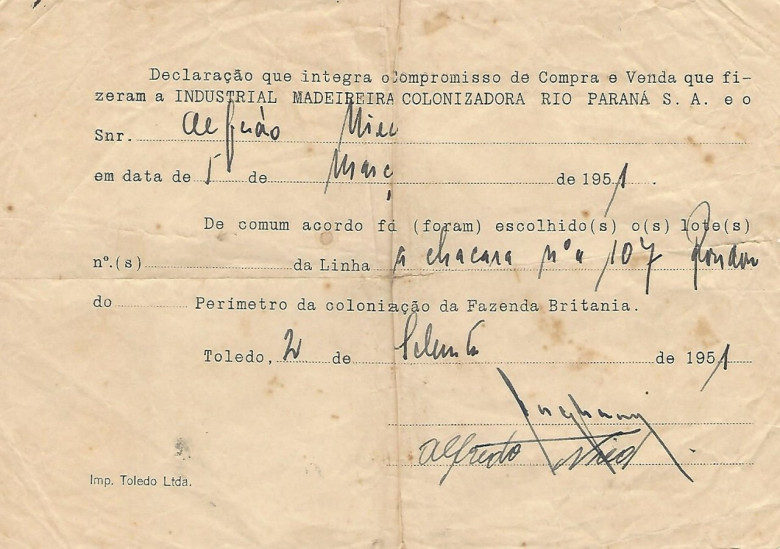 Declaração que integra o Compromisso de Compra e Venda que fi-
zeram a INDUSTRIAL MADEIREIRA COLONIZADORA RIO PARANÁ S. A. e o
Snr.
em data de 5 de Març de 1951.
De comum acordo fá (foram) escolhido(s) o(s) lote(s)
nº.(s) da Linha a chacara nº a 107 Rondon
do Perimetro da colonização da Fazenda Britania.
Toledo, 2 de de 1951
Alfredo Nied
Imp. Toledo Ltda.